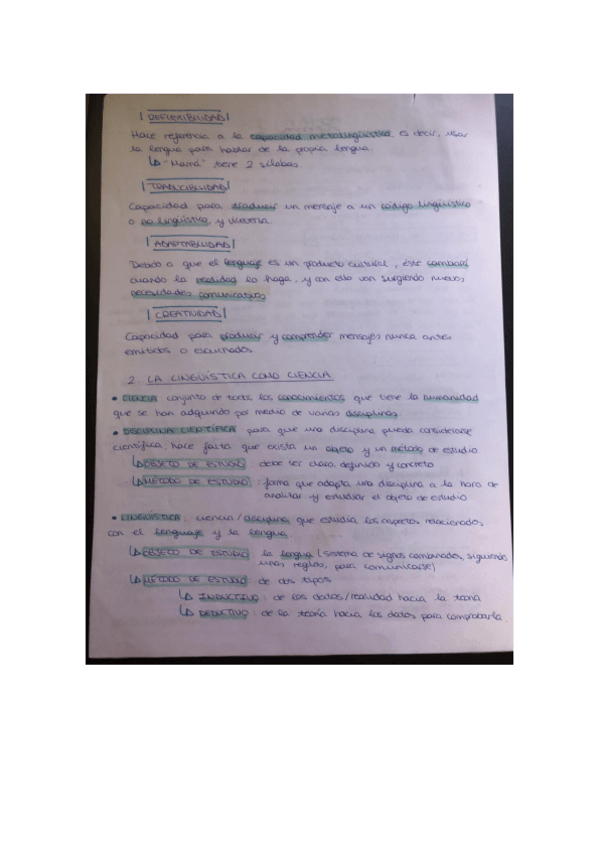 REFLEXIBILIDAD
Hace referencia a la capacidad metalingüística, es decir, usar
la lengua para hablar de la propia lengua.
↳ "Mamá" tiene 2 sílabas.
TRADUCIBILIDAD
Capacidad para traducir un mensaje a un código lingüístico
o no lingüístico y viceversa.
ADAPTABILIDAD
Debido a que el lenguaje es un producto cultural, éste cambiará
cuando la realidad lo haga, y con ello van surgiendo nuevas
necesidades comunicativas
CREATIVIDAD
Capacidad para producir y comprender mensajes nunca antes
emitidos o escuchados
2. LA LINGÜÍSTICA COMO CIENCIA
• CIENCIA: conjunto de todos los conocimientos que tiene la humanidad
que se han adquirido por medio de varias disciplinas
• DISCIPLINA CIENTÍFICA: para que una disciplina pueda considerarse
científica, hace falta que exista un objeto y un método de estudio
↳ OBJETO DE ESTUDIO: debe ser claro, definido y concreto
↳ MÉTODO DE ESTUDIO: forma que adopta una disciplina a la hora de
analizar y estudiar el objeto de estudio
• LINGÜÍSTICA: ciencia/disciplina que estudia los aspectos relacionados
con el lenguaje y la lengua.
↳ OBJETO DE ESTUDIO: la lengua (sistema de signos combinados, siguiendo
unas reglas, para comunicarse)
↳ MÉTODO DE ESTUDIO: de dos tipos
↳ INDUCTIVO: de los datos/realidad hacia la teoría
↳ DEDUCTIVO: de la teoría hacia los datos para comprobarla.